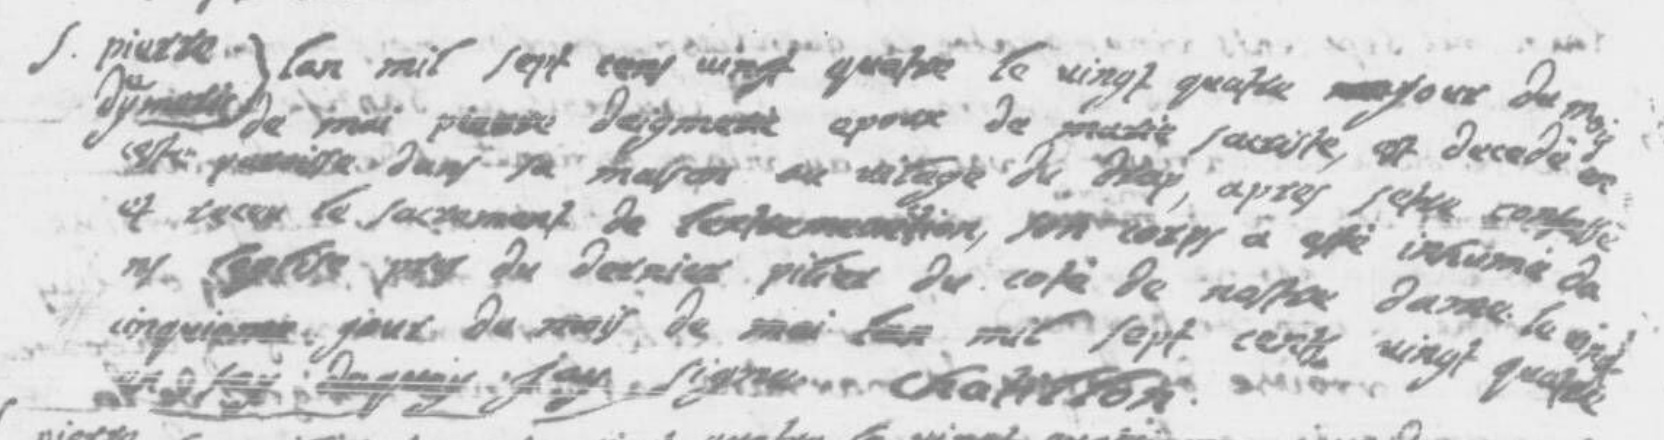 S. pierre lan mil sept cens vingt quatre le vingt quatre jour du mois
de mai pierre daigmont epoux de marie sacriste, est decedé en
cette paroisse dans sa maison au vilage du drap, apres s'estre confessé
et receu le sacrement de lextremeonction, son corps a esté inhumé da
ns leglise pres du dernier pilier du costé de nostre dame le vingt
cinquieme jour du mois de mai lan mil sept cents vingt quatre
en foy dequoy jay signé Chatillon.
pierre